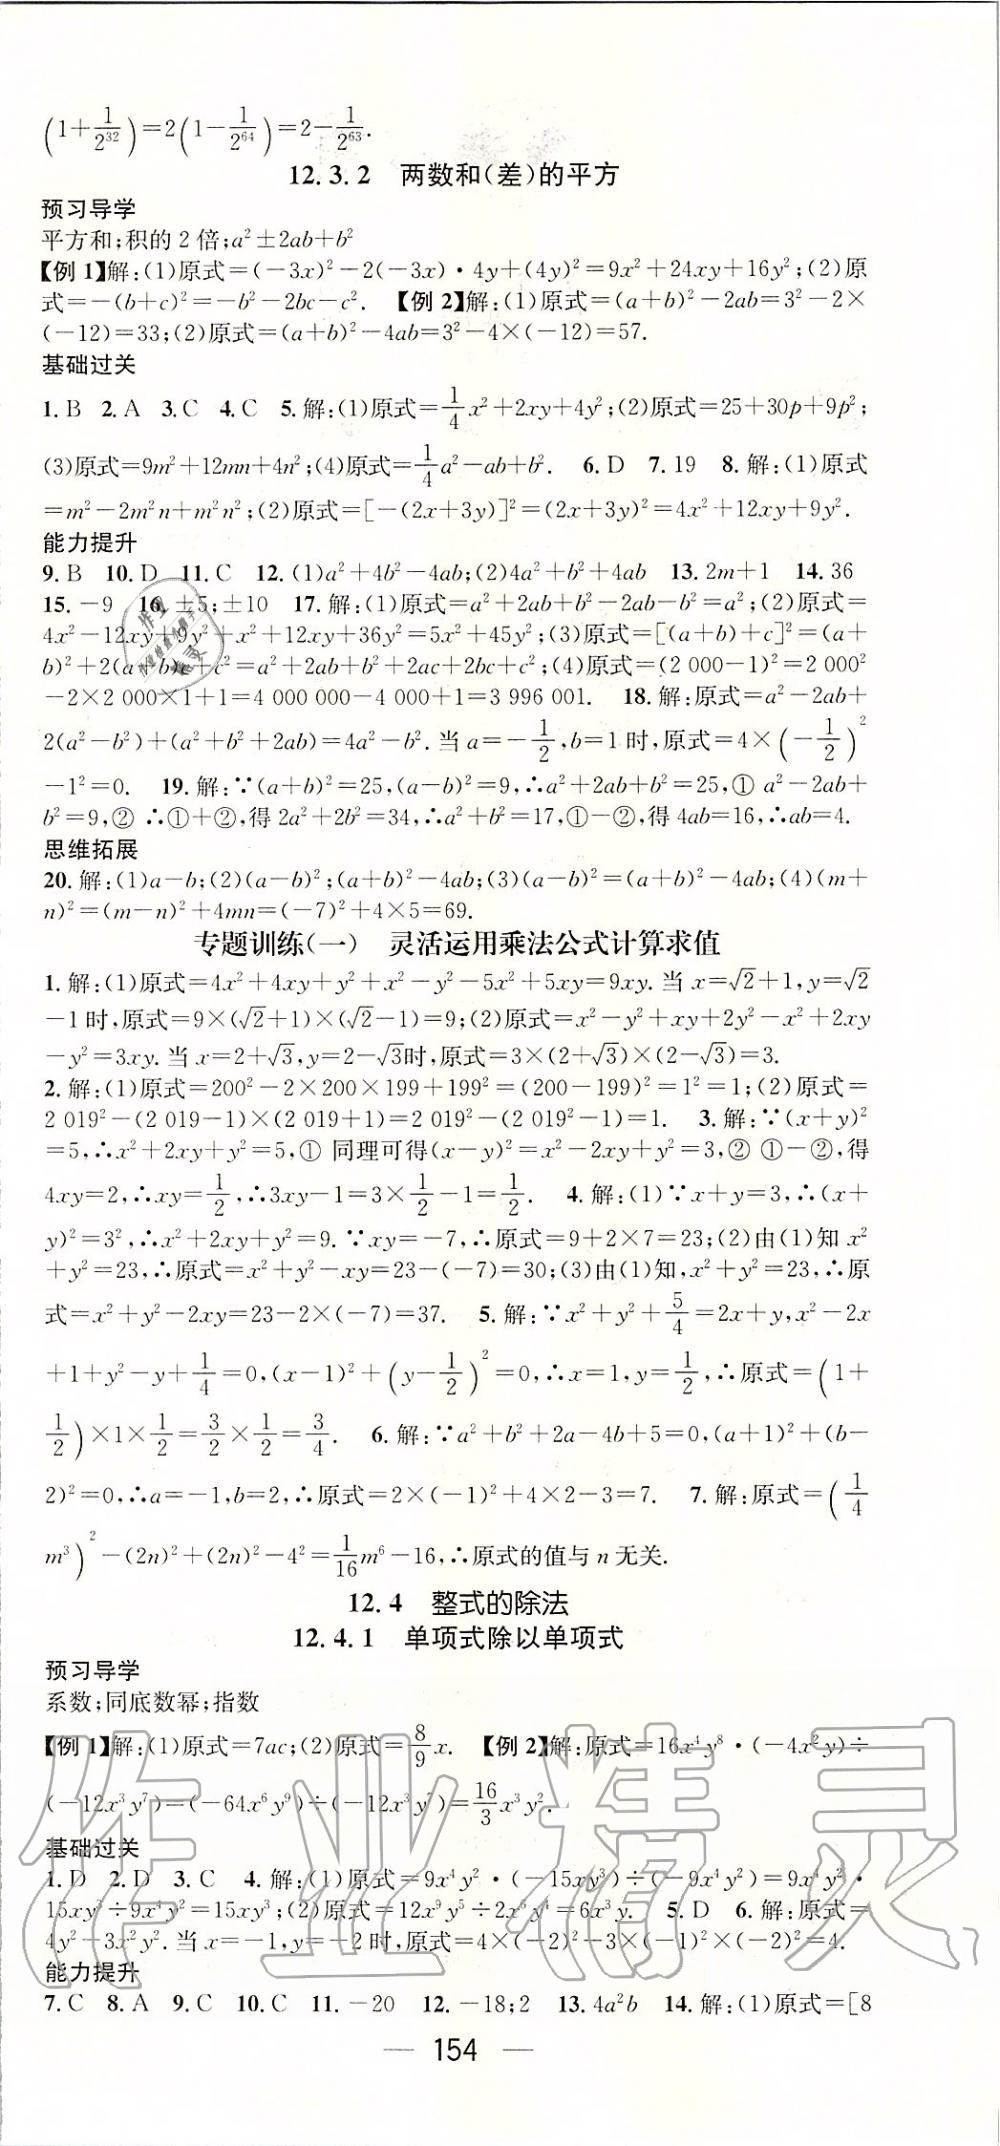 (1+1/2^32)=2(1−1/2^64)=2−1/2^63.
12.3.2 两数和(差)的平方
预习导学
平方和;积的2倍;a²±2ab+b²
【例1】解:(1)原式=(−3x)²−2(−3x)·4y+(4y)²=9x²+24xy+16y²;(2)原
式=−(b+c)²=−b²−2bc−c². 【例2】解:(1)原式=(a+b)²−2ab=3²−2×
(−12)=33;(2)原式=(a+b)²−4ab=3²−4×(−12)=57.
基础过关
1.B 2.A 3.C 4.C 5.解:(1)原式=1/4x²+2xy+4y²;(2)原式=25+30p+9p²;
(3)原式=9m²+12mn+4n²;(4)原式=1/4a²−ab+b². 6.D 7.19 8.解:(1)原式
=m²−2m²n+m²n²;(2)原式=[−(2x+3y)]²=(2x+3y)²=4x²+12xy+9y².
能力提升
9.B 10.D 11.C 12.(1)a²+4b²−4ab;(2)4a²+b²+4ab 13.2m+1 14.36
15.−9 16.±5;±10 17.解:(1)原式=a²+2ab+b²−2ab−b²=a²;(2)原式=
4x²−12xy+9y²+x²+12xy+36y²=5x²+45y²;(3)原式=[(a+b)+c]²=(a+
b)²+2(a+b)c+c²=a²+2ab+b²+2ac+2bc+c²;(4)原式=(2 000−1)²=2 000²
−2×2 000×1+1=4 000 000−4 000+1=3 996 001. 18.解:原式=a²−2ab+
2(a²−b²)+(a²+b²+2ab)=4a²−b².当a=−1/2,b=1时,原式=4×(−1/2)²
−1²=0. 19.解:∵(a+b)²=25,(a−b)²=9,∴a²+2ab+b²=25,① a²−2ab+
b²=9,② ∴①+②,得2a²+2b²=34,∴a²+b²=17,①−②,得4ab=16,∴ab=4.
思维拓展
20.解:(1)a−b;(2)(a−b)²;(a+b)²−4ab;(3)(a−b)²=(a+b)²−4ab;(4)(m+
n)²=(m−n)²+4mn=(−7)²+4×5=69.
专题训练(一) 灵活运用乘法公式计算求值
1.解:(1)原式=4x²+4xy+y²+x²−y²−5x²+5xy=9xy.当x=√2+1,y=√2
−1时,原式=9×(√2+1)×(√2−1)=9;(2)原式=x²−y²+xy+2y²−x²+2xy
−y²=3xy.当x=2+√3,y=2−√3时,原式=3×(2+√3)×(2−√3)=3.
2.解:(1)原式=200²−2×200×199+199²=(200−199)²=1²=1;(2)原式=
2 019²−(2 019−1)×(2 019+1)=2 019²−(2 019²−1)=1. 3.解:∵(x+y)²
=5,∴x²+2xy+y²=5,① 同理可得(x−y)²=x²−2xy+y²=3,② ①−②,得
4xy=2,∴xy=1/2,∴3xy−1=3×1/2−1=1/2. 4.解:(1)∵x+y=3,∴(x+
y)²=3²,∴x²+2xy+y²=9.∵xy=−7,∴原式=9+2×7=23;(2)由(1)知x²
+y²=23,∴原式=x²+y²−xy=23−(−7)=30;(3)由(1)知,x²+y²=23,∴原
式=x²+y²−2xy=23−2×(−7)=37. 5.解:∵x²+y²+5/4=2x+y,x²−2x
+1+y²−y+1/4=0,(x−1)²+(y−1/2)²=0,∴x=1,y=1/2,∴原式=(1+
1/2)×1×1/2=3/2×1/2=3/4. 6.解:∵a²+b²+2a−4b+5=0,(a+1)²+(b−
2)²=0,∴a=−1,b=2,∴原式=2×(−1)²+4×2−3=7. 7.解:原式=(1/4
m³)²−(2n)²+(2n)²−4²=1/16m⁶−16,∴原式的值与n无关.
12.4 整式的除法
12.4.1 单项式除以单项式
预习导学
系数;同底数幂;指数
【例1】解:(1)原式=7ac;(2)原式=8/9x. 【例2】解:原式=16x⁴y⁸·(−4x²y)÷
(−12x³y⁷)=(−64x⁶y⁹)÷(−12x³y⁷)=16/3x³y².
基础过关
1.D 2.D 3.C 4.解:(1)原式=9x⁴y²·(−15xy³)÷(−9x⁴y²)=9x⁴y²·
15xy³÷9x⁴y²=15xy³;(2)原式=12x⁹y⁵÷2x⁶y⁴=6x³y. 5.D 6.解:原式=
4y²−3x²y².当x=−1,y=−2时,原式=4×(−2)²−3×(−1)²×(−2)²=4.
能力提升
7.C 8.A 9.C 10.C 11.−20 12.−18;2 13.4a²b 14.解:(1)原式=[8
— 154 —
作业精灵